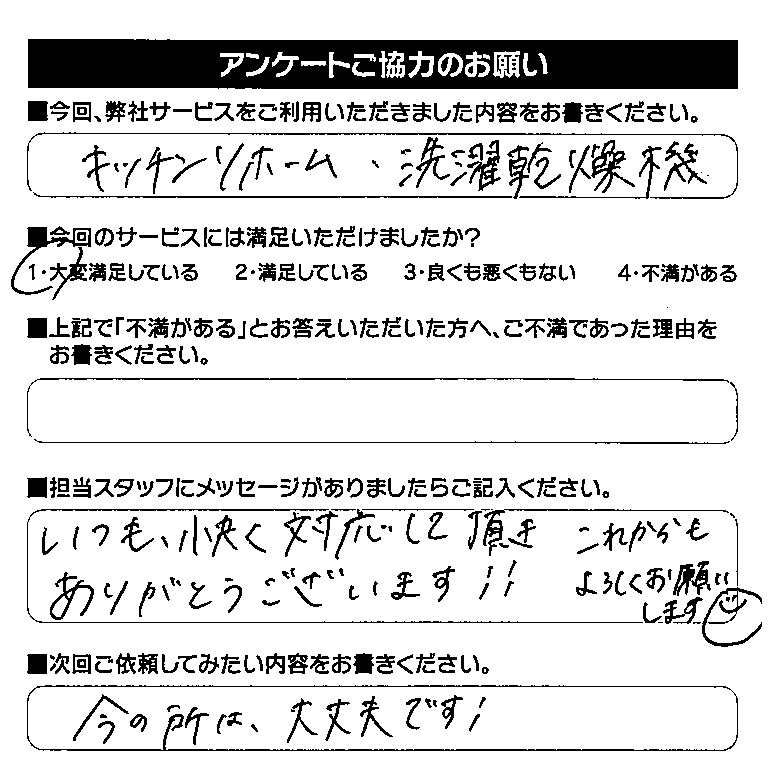 アンケートご協力のお願い
■今回、弊社サービスをご利用いただきました内容をお書きください。
キッチンリホーム、洗濯乾燥機
■今回のサービスには満足いただけましたか?
1・大変満足している 2・満足している 3・良くも悪くもない 4・不満がある
■上記で「不満がある」とお答えいただいた方へ、ご不満であった理由を
お書きください。
■担当スタッフにメッセージがありましたらご記入ください。
いつも、快く対応して頂き
ありがとうございます!!
これからも
よろしくお願い
します
■次回ご依頼してみたい内容をお書きください。
今の所は、大丈夫です!